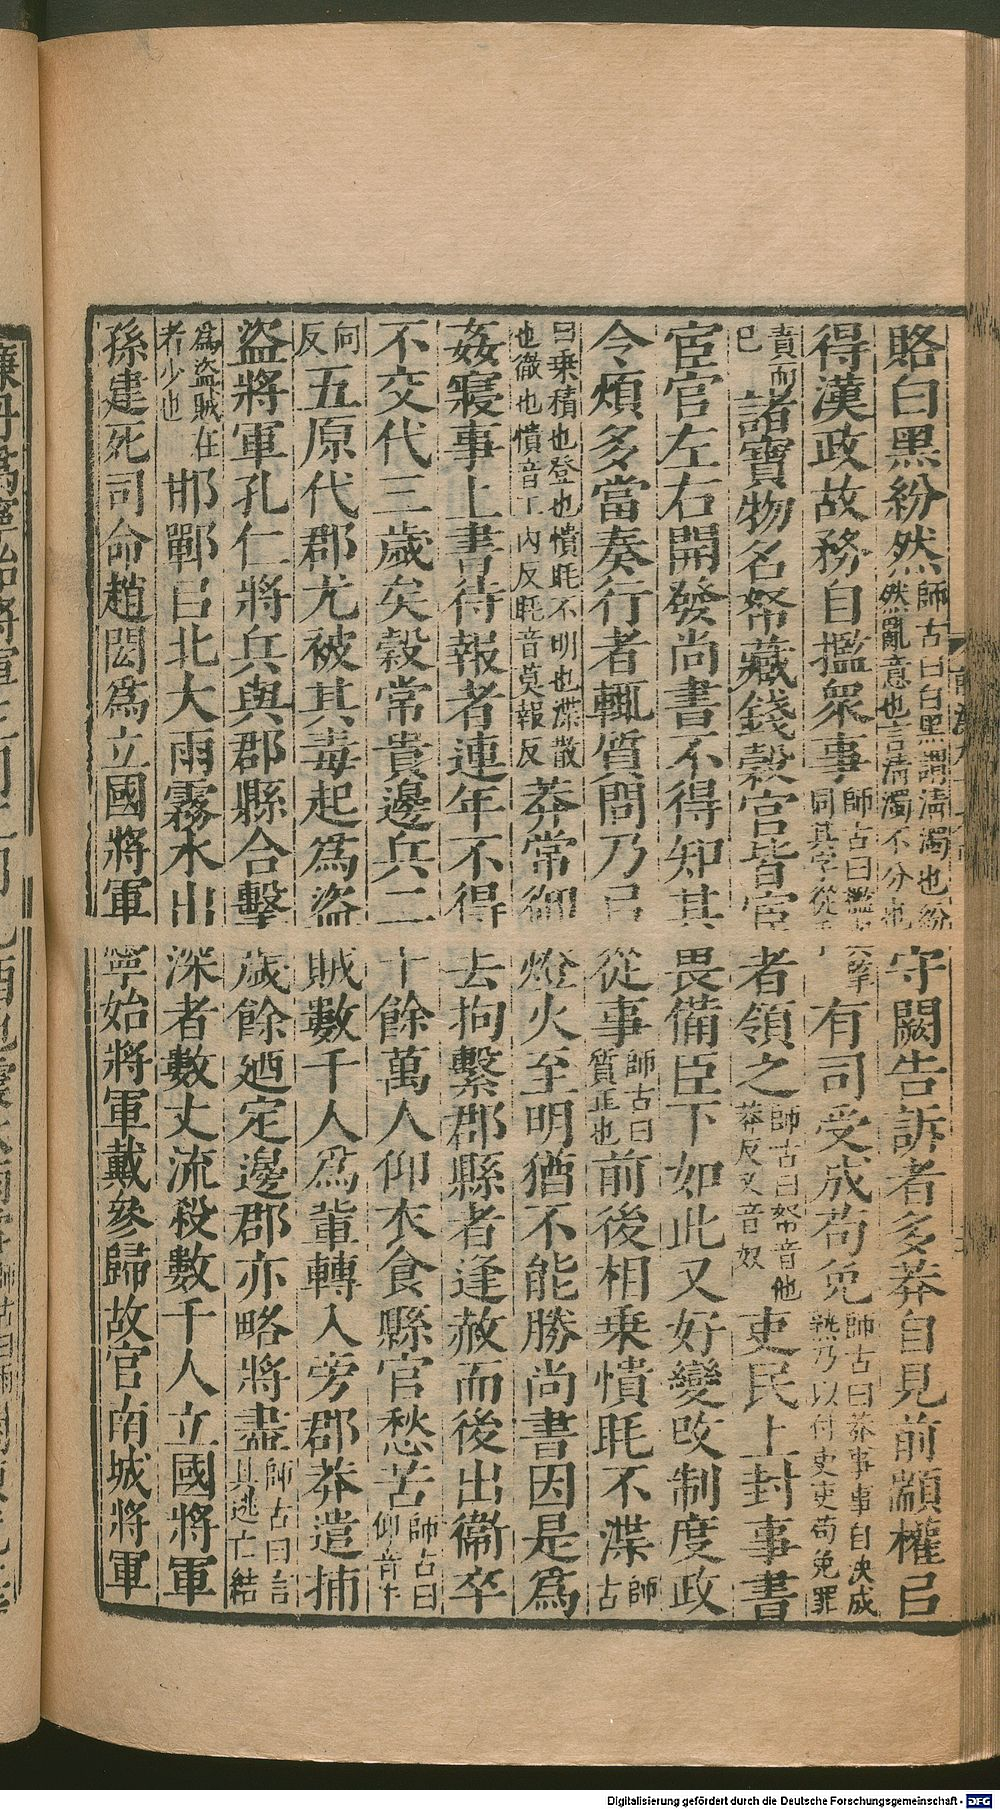 賂白黑紛然師古曰白黑謂清濁也紛然亂意也言清濁不分也守闕告訴者多莽自見前顓權㠯
得漢政故務自擥衆事師古曰擥與攬同其字從手有司受成苟免師古曰莽事事自決成孰乃以付吏吏苟免罪
責而已諸寶物名帑藏錢穀官皆宦者領之師古曰帑音他莽反又音奴吏民上封事書
宦官左右開發尚書不得知其畏備臣下如此又好變改制度政
令煩多當奏行者輒質問乃㠯從事師古曰質正也前後相乗憒眊不渫師古
曰乗積也登也憒眊不明也渫散也徹也憒音工內反眊音莫報反莽常御燈火至明猶不能勝尚書因是爲
姦寑事上書待報者連年不得去拘繫郡縣者逢赦而後出衞卒
不交代三歲矣穀常貴邊兵二十餘萬人仰衣食縣官愁苦師古曰仰音牛
向反五原代郡尤被其毒起爲盜賊數千人爲輩轉入旁郡莽遣捕
盜將軍孔仁將兵與郡縣合擊歲餘廼定邊郡亦略將盡師古曰言其逃亡結
爲盜賊在者少也邯鄲㠯北大雨霧水出深者數丈流殺數千人立國將軍
孫建死司命趙閎爲立國將軍寧始將軍戴參歸故官南城將軍
Digitalisierung gefördert durch die Deutsche Forschungsgemeinschaft - DFG